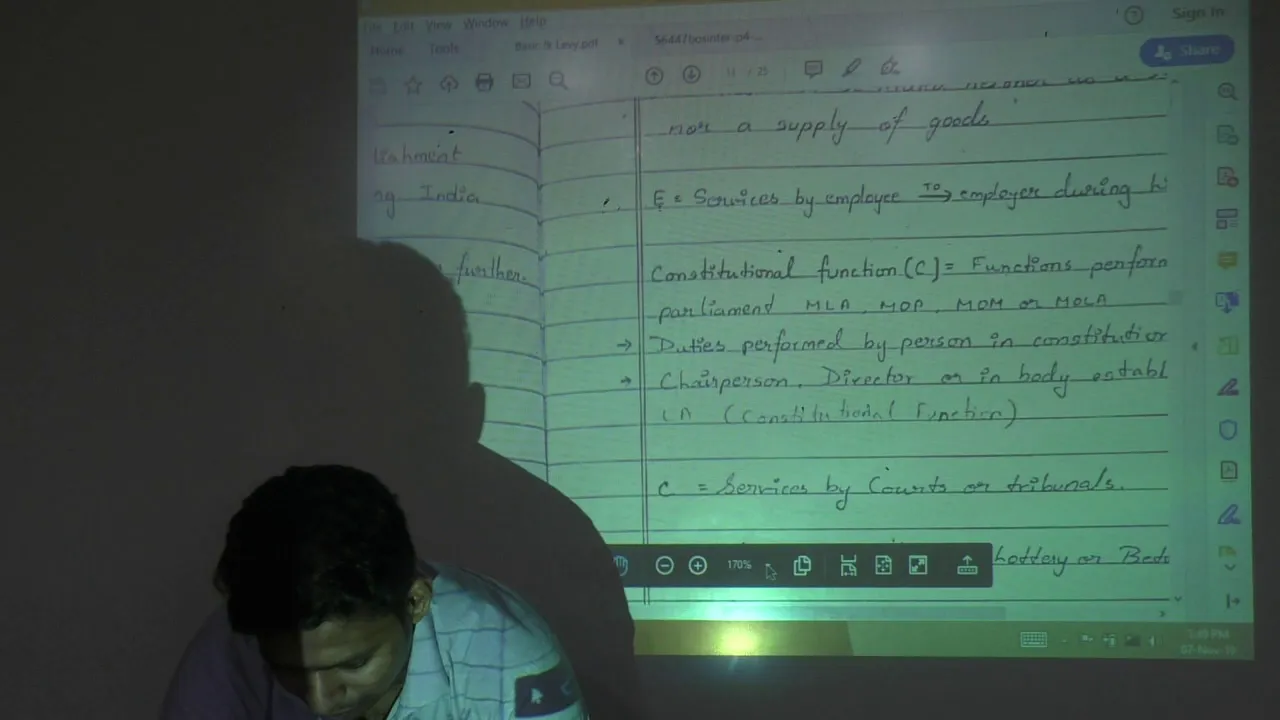 File Edit View Window Help
Sign In
Home Tools Basic & Levy.pdf
Share
11 / 25
nor a supply of goods
lishment
ng India
E = Services by employee TO → employer during hi
further.
Constitutional function (C) = Functions perform
parliament MLA, MOP, MOM or MOLA
→ Duties performed by person in constitution
→ Chairperson, Director or in body establ
LA (Constitutional Function)
C = Services by Courts or tribunals.
170%
Lottery or Bett
1:49 PM
07-Nov-19